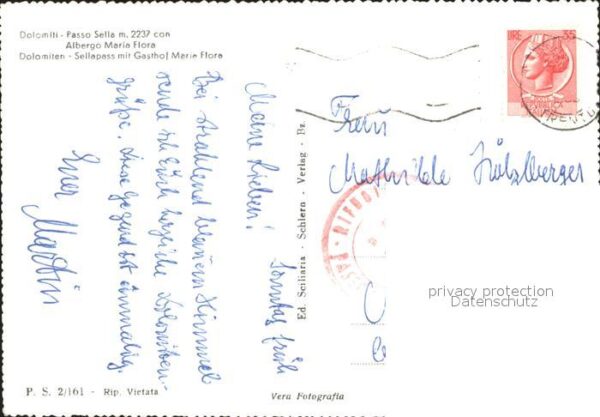 Dolomiti - Passo Sella m. 2237 con
Albergo Maria Flora
Dolomiten - Sellapass mit Gasthof Maria Flora
Sonntag früh
Meine Lieben!
Bei strahlend blauem Himmel
sende ich Euch herzliche Dolomiten-
grüße. Diese Gegend ist einmalig.
Euer Martin
Ed. Sciliaria - Schlern - Verlag - Bz.
LIRE 35
Frau
Mathilde Holzberger
PASS
RIFUGIO
privacy protection
Datenschutz
P. S. 2/161 - Rip. Vietata
Vera Fotografia